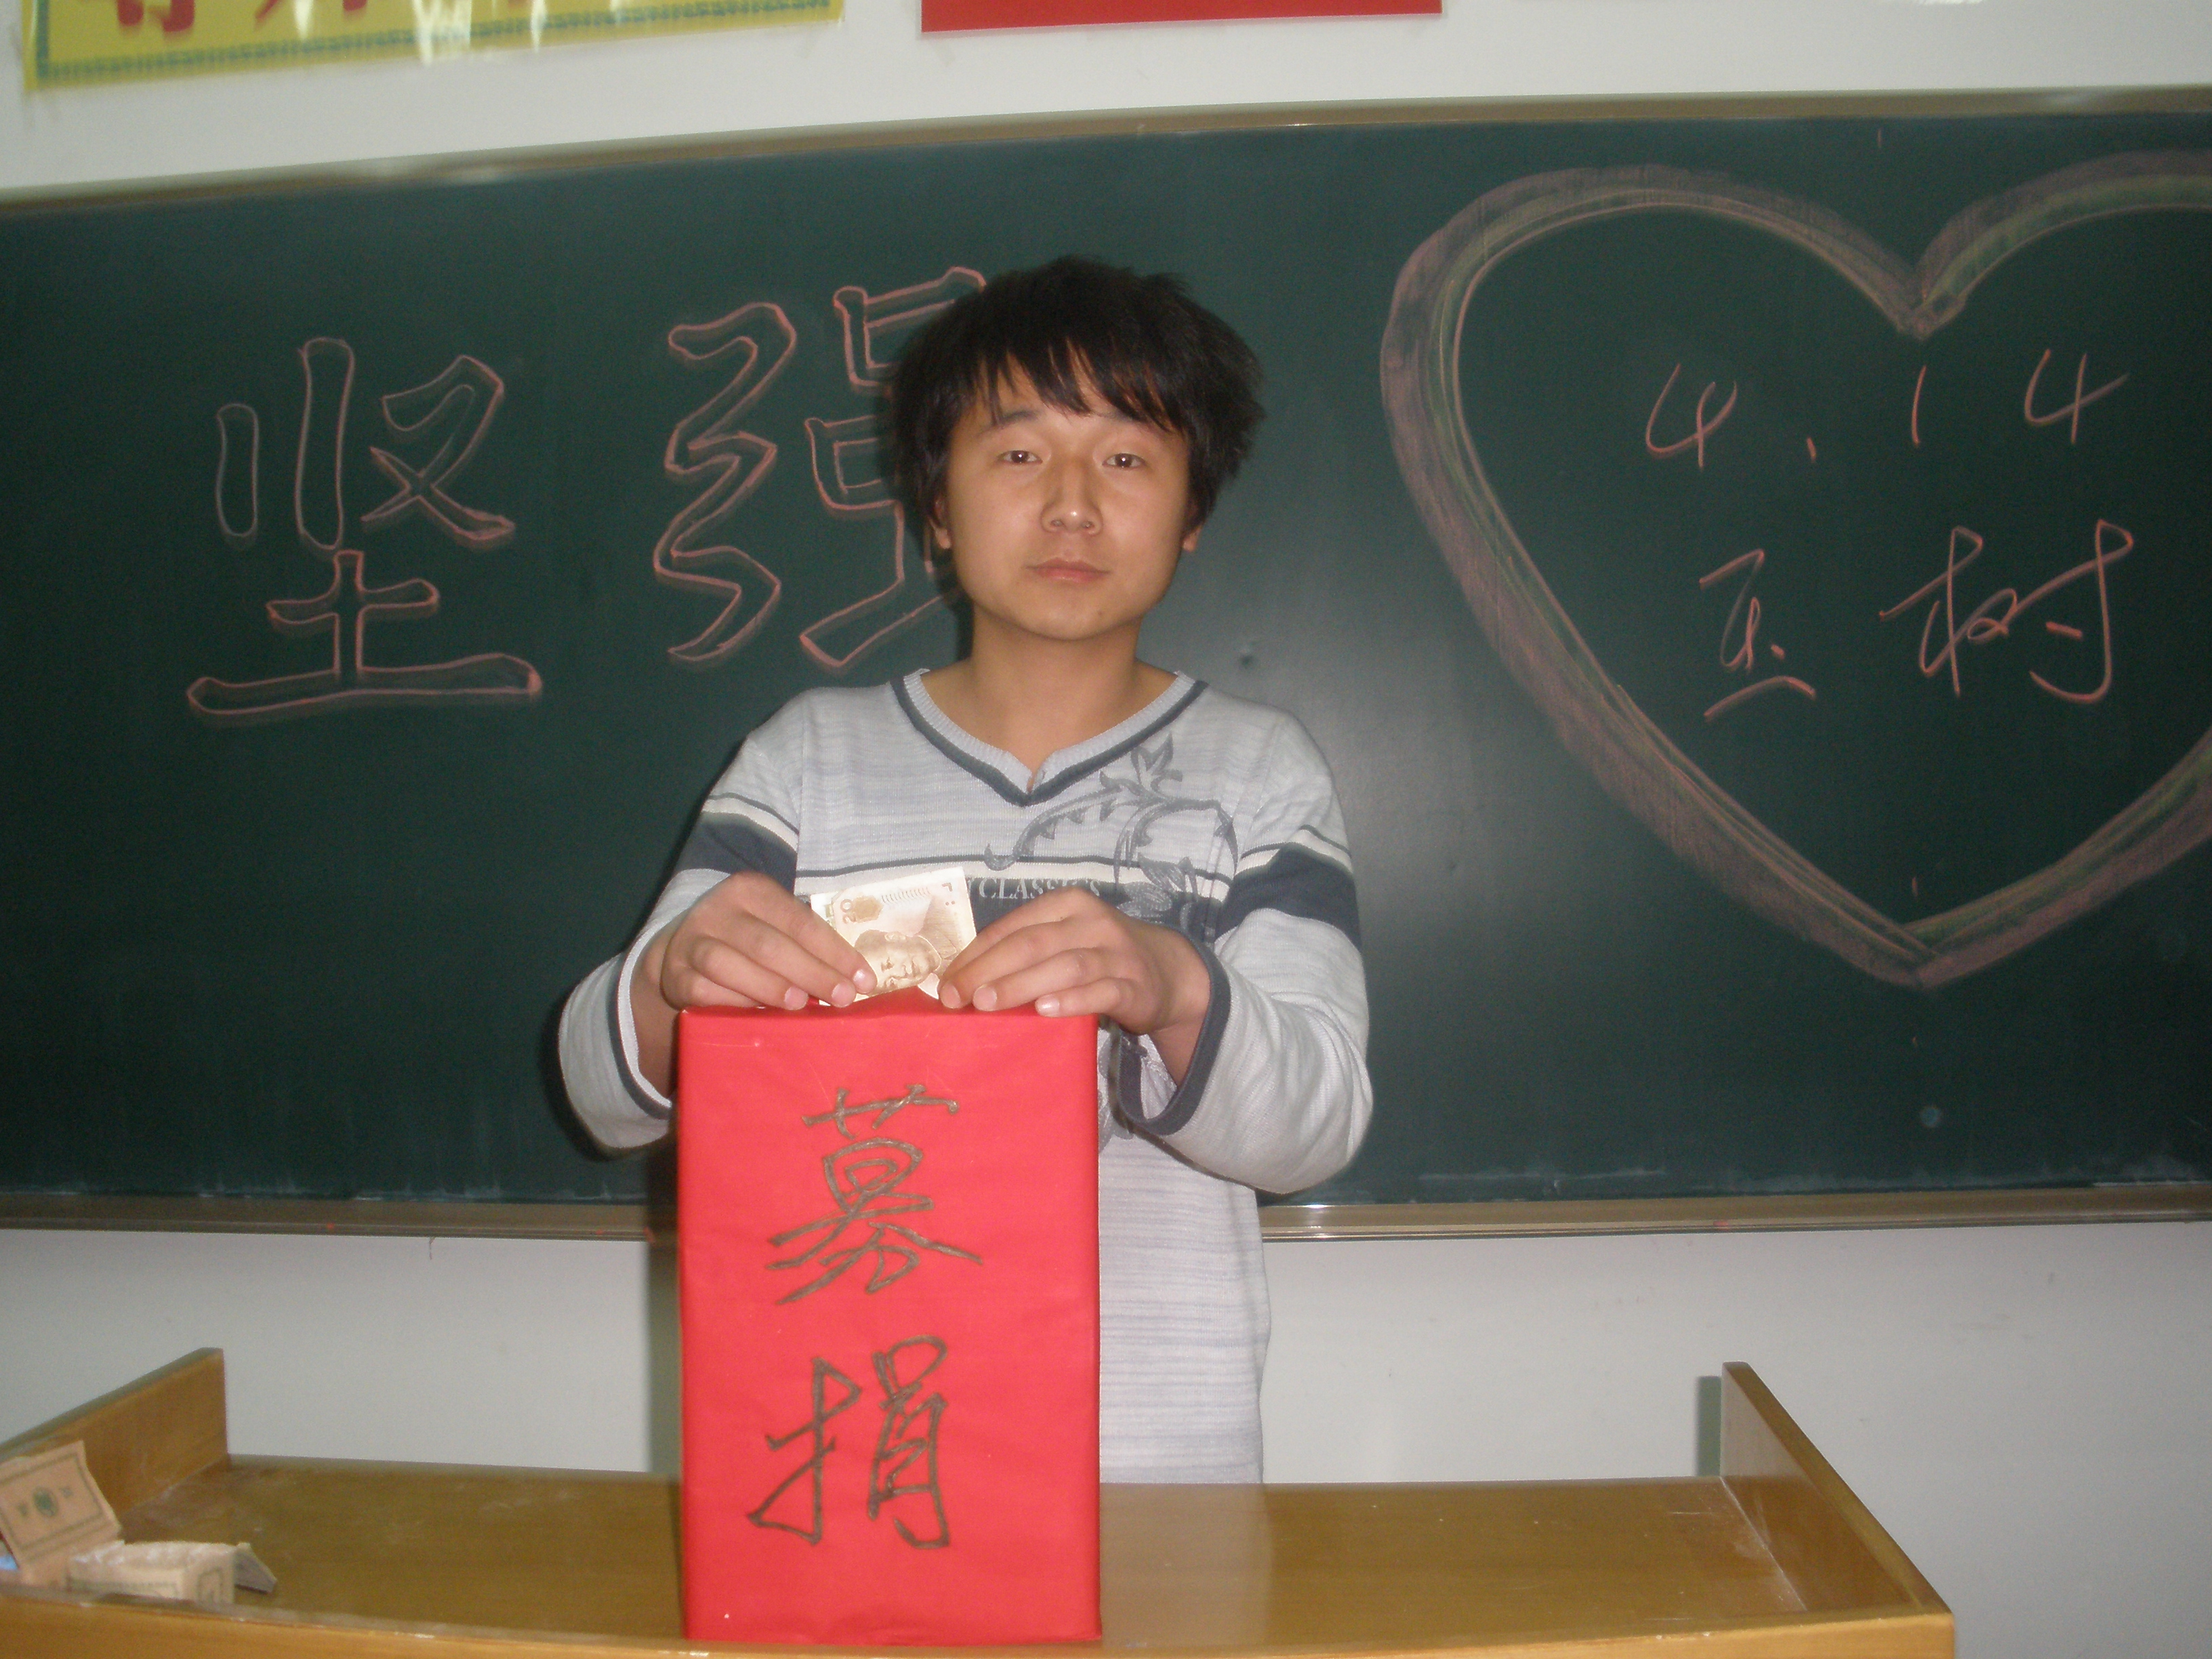 坚强
4.14
玉树
20
CLASSICS
募捐